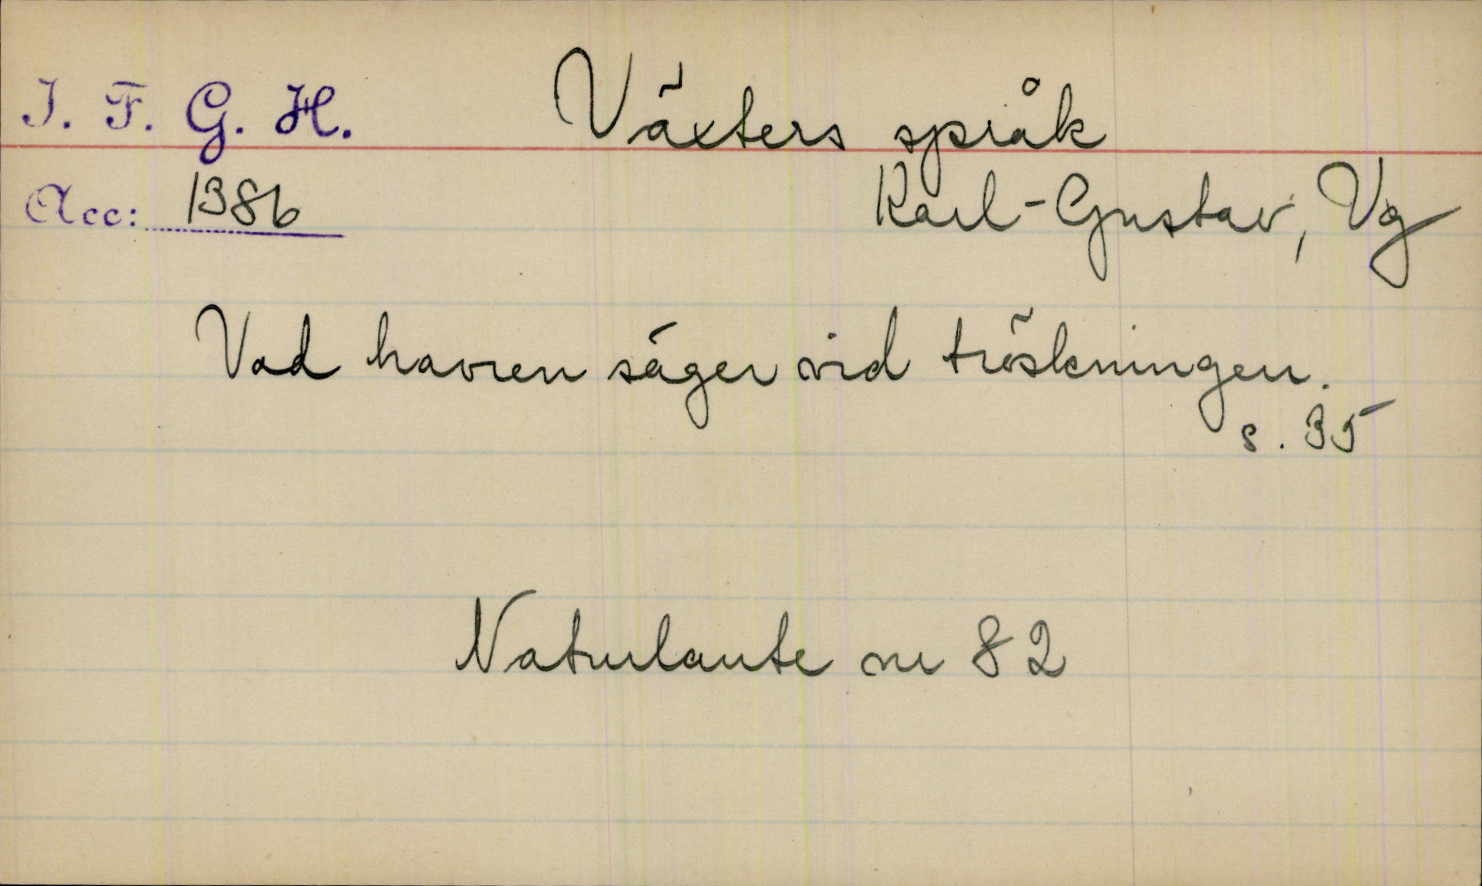 I. F. G. H.
Växters språk
Acc: 1386
Karl-Gustav, Vg
Vad havren säger vid tröskningen.
s. 35
Naturlaute nr 82